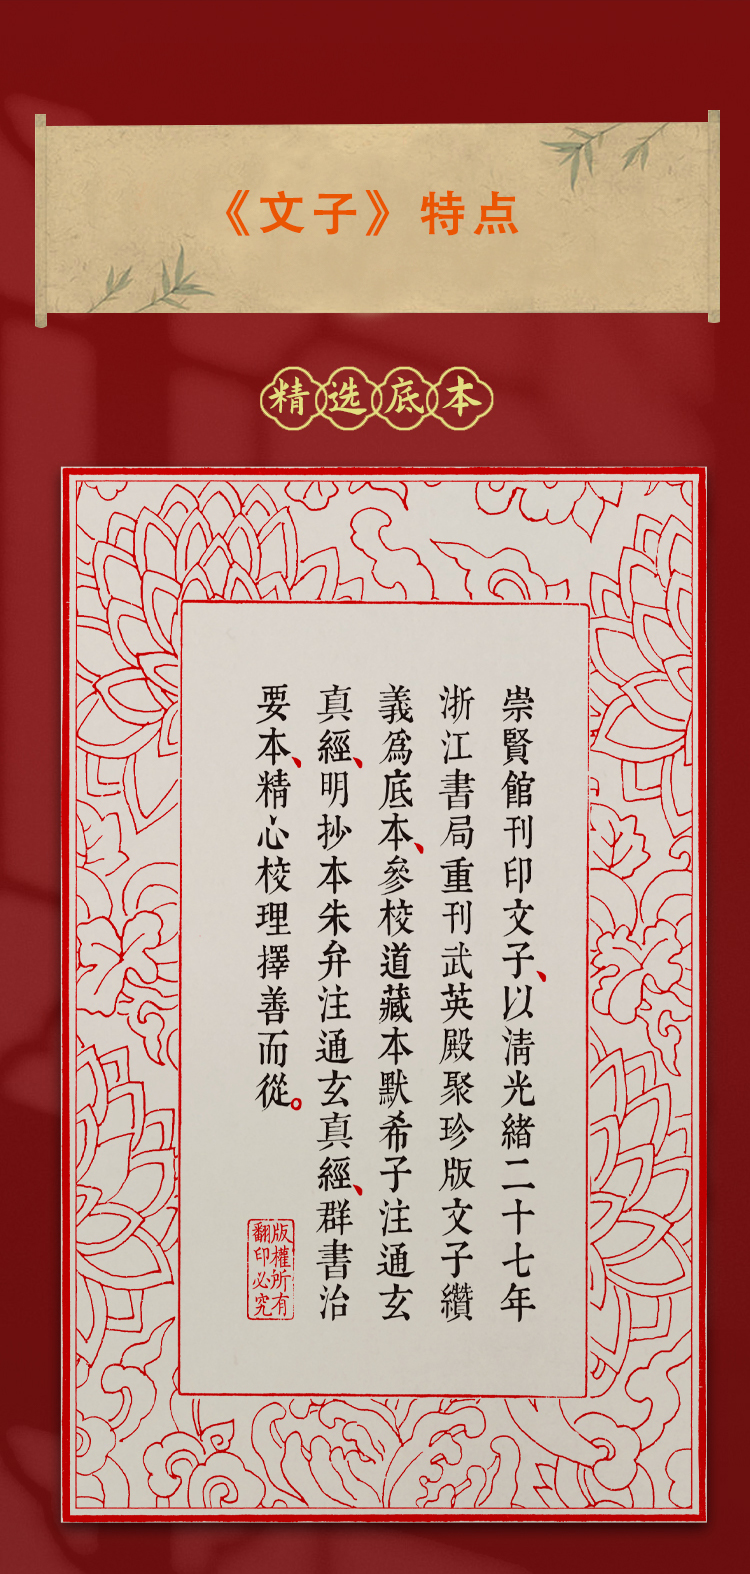 《文子》特点
精选底本
崇賢館刊印文子、以清光緒二十七年
浙江書局重刊武英殿聚珍版文子纘
義爲底本、參校道藏本默希子注通玄
真經、明抄本朱弁注通玄真經、群書治
要本、精心校理擇善而從。
版權所有
翻印必究